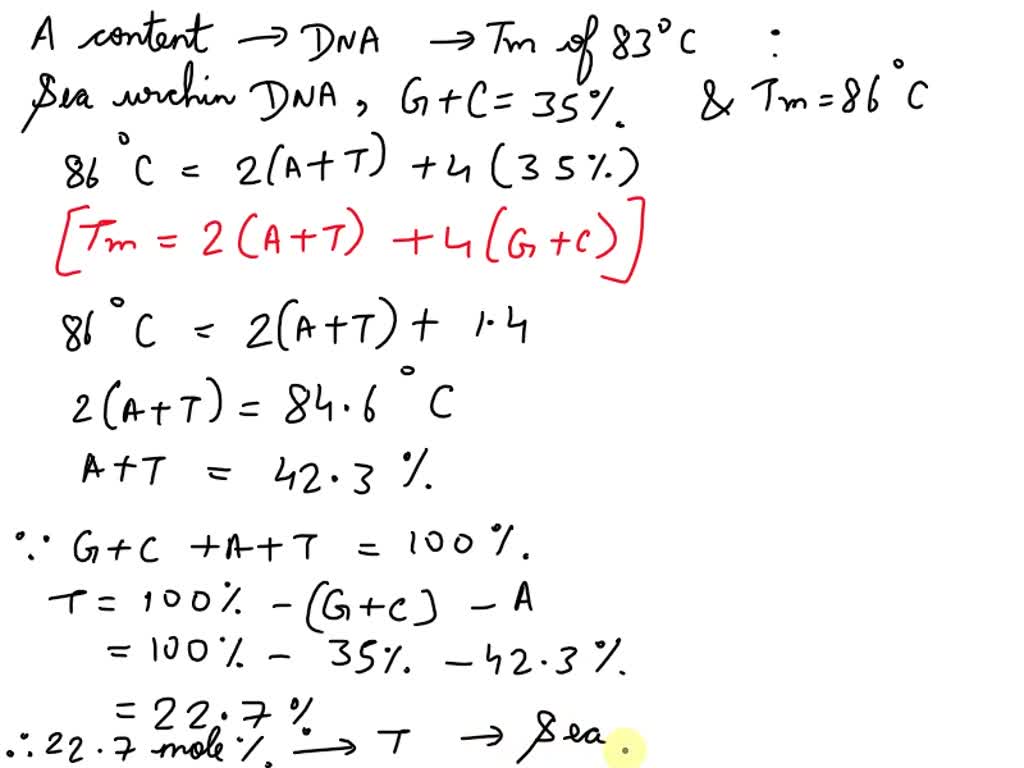 A content → DNA → Tm of 83°C :
Sea urchin DNA, G+C = 35%. & Tm = 86°C
86°C = 2(A+T) + 4(35%)
[Tm = 2(A+T) + 4(G+C)]
86°C = 2(A+T) + 1.4
2(A+T) = 84.6°C
A+T = 42.3%.
∵ G+C +A+T = 100%.
T = 100% - (G+C) - A
= 100% - 35% - 42.3%.
= 22.7%
∴ 22.7 mole%. → T → Sea